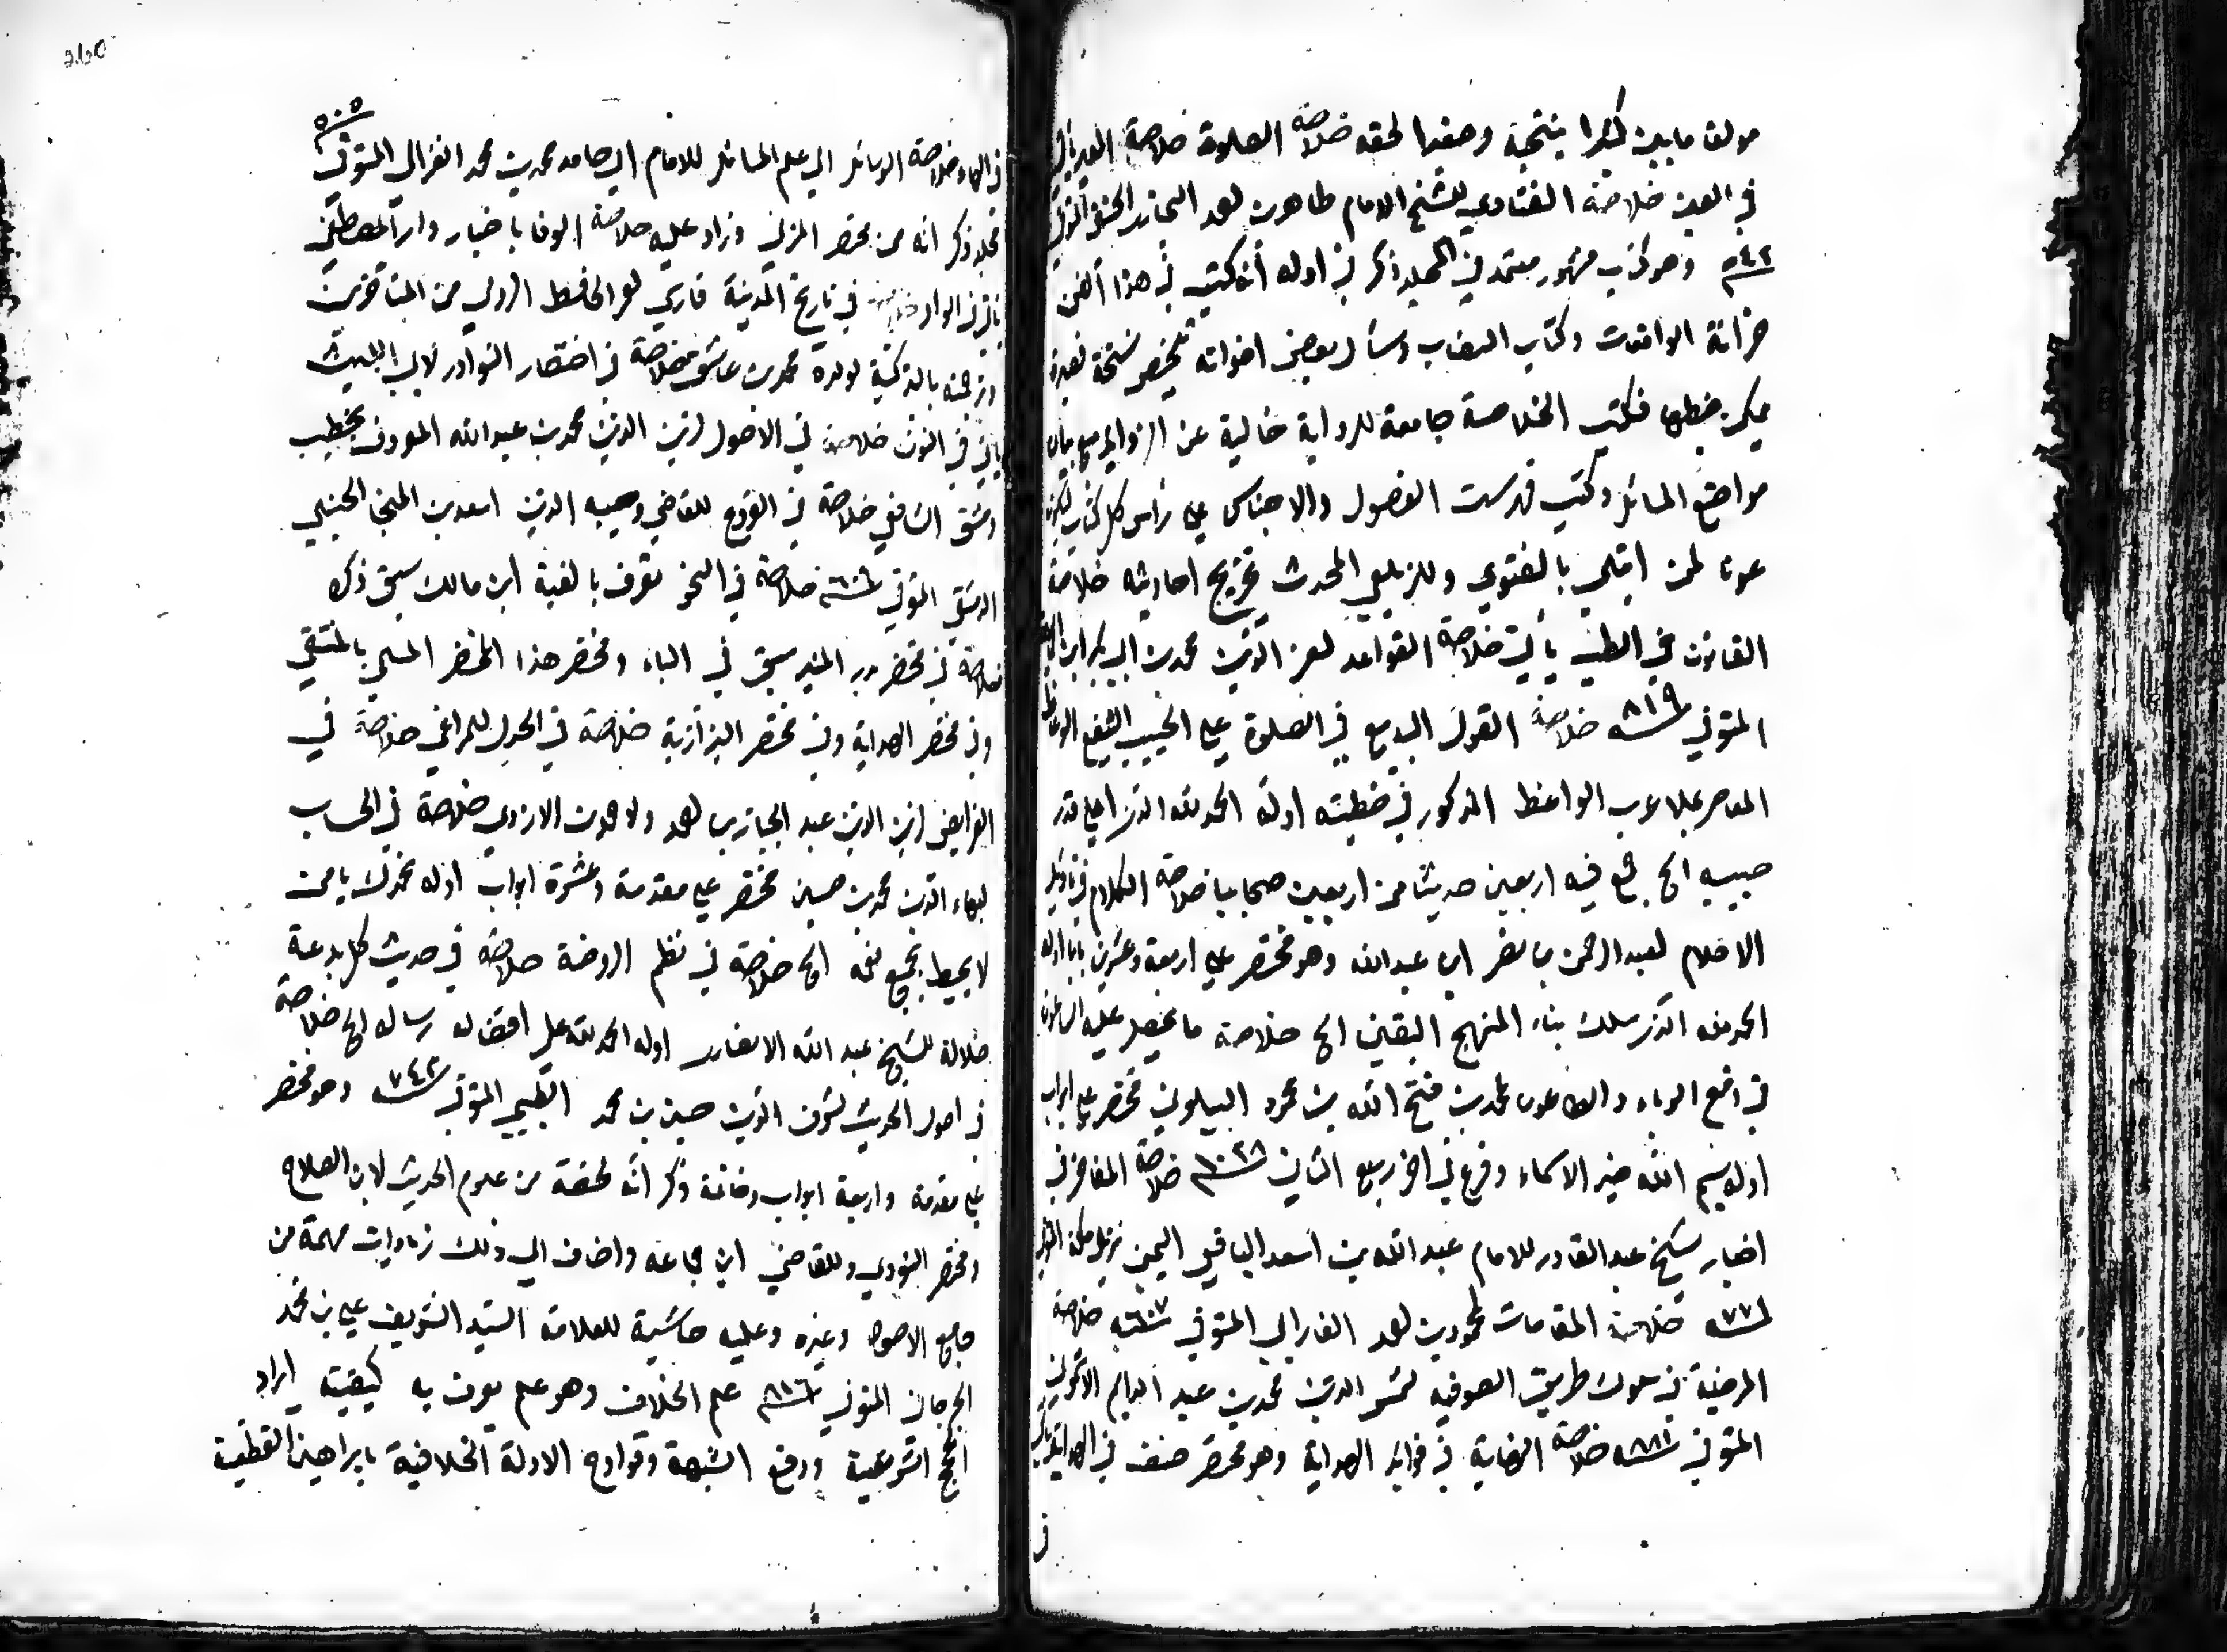 مولف ما بين كبيرا ينتحبه وصغيرا لحقه خلاصة الصلوة خلاصة
في العين خلاصة الفتاوي للشيخ الامام طاهر بن احمد البخاري الحنفي المتوفى
٥٤٢ وهو كتاب مشهور معتمد في مجلد ذكر في اوله أنه كتب في هذا الفن
خزانة الواقعات وكتاب النصاب وسأل بعض اخوانه تلخيص نسخة قصيرة
يمكن ضبطها فكتب الخلاصة جامعة للرواية خالية عن الزوايد مع بيان
مواضع المسائل وكتب فهرست الفصول والاجناس على رأس كل كتاب ليكون
عونا لمن ابتلي بالفتوى وللزيلعي المحدث تخريج احاديثه خلاصة
القانون في الطب يأتي خلاصة القواعد لعز الدين محمد بن ابي بكر ابن
المتوفى ٨١٩ خلاصة القول البديع في الصلوة على الحبيب الشفيع
المعاصر الواعظ المذكور في خطبته اوله الحمد لله الذي اعلى قدر
حبيبه الخ جمع فيه اربعين حديثا من اربعين صحابيا خلاصة الكلام في تأويل
الاحلام لعبد الرحمن بن نصر ابن عبد الله وهو مختصر على اربعة وعشرين بابا اوله
الحمد لله الذي سلك بناء المنهج اليقين الخ خلاصة ما يحصل عليه الساعون
في ادفع الوباء والطاعون لمحمد بن فتح الله بن محمود البيلوني مختصر على ابواب
اوله بسم الله خير الاسماء وفرغ في اخر ربيع الثاني ١٠٢٨ خلاصة المفاخر في
اخبار شيخ عبد القادر للامام عبد الله بن اسعد اليافعي اليمني نزيل مكة المتوفى
٧٧١ خلاصة المقامات لمحمود بن احمد الفارابي المتوفى ٦٠٧ خلاصة
المرضية في سلوك طريق الصوفية لشمس الدين محمد بن عبد الدايم
المتوفى ٨٨١ خلاصة النهاية في فوائد الهداية وهو مختصر صنف في الهداية
في
٥٠٥
في الهاء خلاصة الوسائل الى علم المسائل للامام ابي حامد محمد بن محمد الغزالي المتوفى
مجلد ذكر انه من مختصر المزني وزاد عليه خلاصة الوفا باخبار دار المصطفى
يأتي في الواو في تاريخ المدينة فارسي
وترجمه بالتركية لولده محمد بن عاشق خلاصة في اختصار النوادر لابي الليث
يأتي في النون خلاصة في الاصول لزين الدين محمد بن عبد الله المعروف بخطيب
دمشق الشافعي خلاصة في الفروع للقاضي وجيه الدين اسعد بن المنجا الحنبلي
الدمشقي المتوفى ٦٠٦ خلاصة في النحو تعرف بالفية ابن مالك سبق ذكره
خلاصة في مختصر بدر المنير سبق في الباء ومختصر هذا المختصر المسمى بالمنتقى
وفي مختصر الهداية وفي مختصر البزازية خلاصة في الجدل للمراغي خلاصة في
الفرايض لزين الدين عبد الجبار بن احمد الازدي خلاصة في الحساب
لبهاء الدين محمد بن حسين مختصر على مقدمة وعشرة ابواب اوله نحمدك يا من
لا يحيط بجميع نعمه الخ خلاصة في نظم الروضة خلاصة في حديث كل بدعة
ضلالة للشيخ عبد الله الانصاري اوله الحمد لله على افضاله رساله الخ خلاصة
في اصول الحديث لشرف الدين حسين بن محمد الطيبي المتوفى ٧٤٣ وهو مختصر
على مقدمة واربعة ابواب وخاتمة ذكر أنه لخصه من علوم الحديث لابن الصلاح
ومختصر النووي وللقاضي ابن جماعه واضاف الى ذلك زيادات مهمة من
جامع الاصول وغيره وعليه حاشية للعلامة السيد الشريف علي بن محمد
الجرجاني المتوفى ٨١٦ علم الخلاف وهو علم يعرف به كيفية ايراد
الحجج الشرعية ودفع الشبهة وقوادح الادلة الخلافية بايراد البراهين القطعية